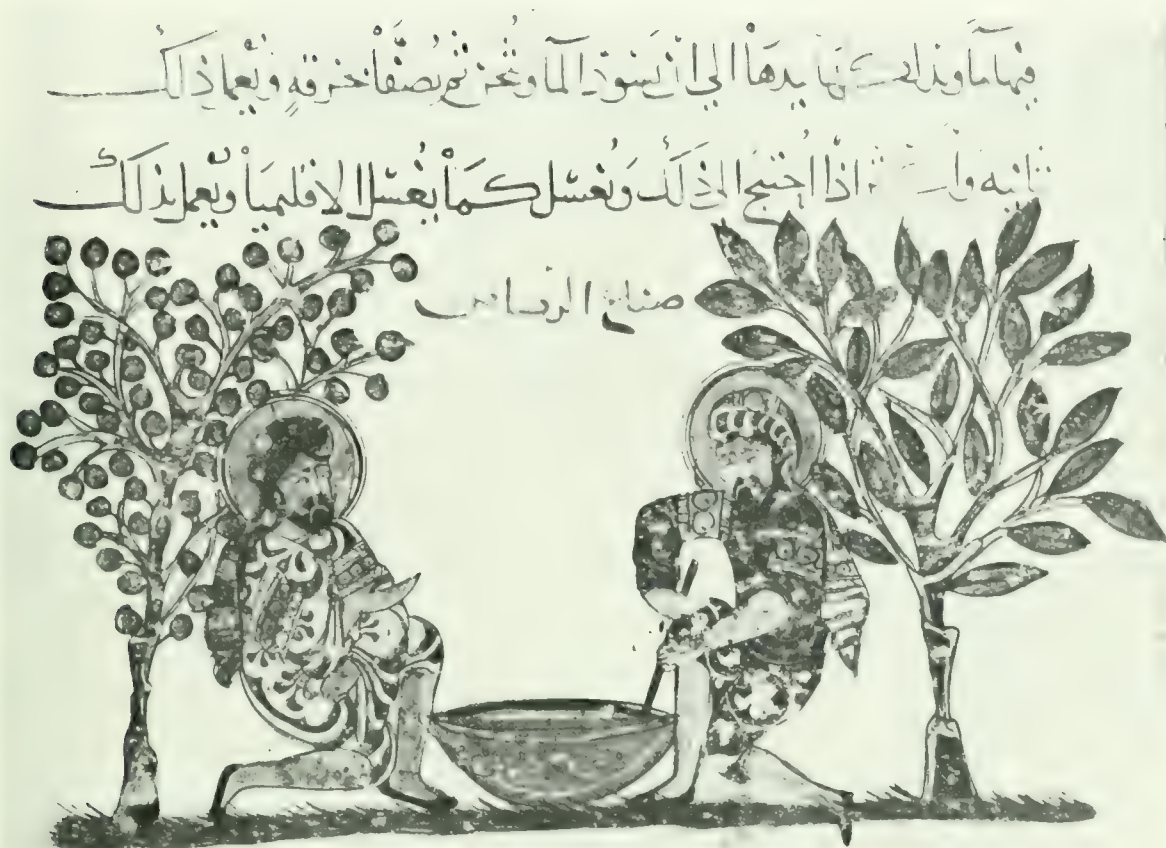 فيها ما وبذلك بيدها الى ان يسود الما ويثخن ثم يصفا بخرقه ويعمل ذلك
ثانيه اذا احتيج الى ذلك ويغسل كما يغسل الاقليميا ويعمل بذلك
صناعة الرصاص